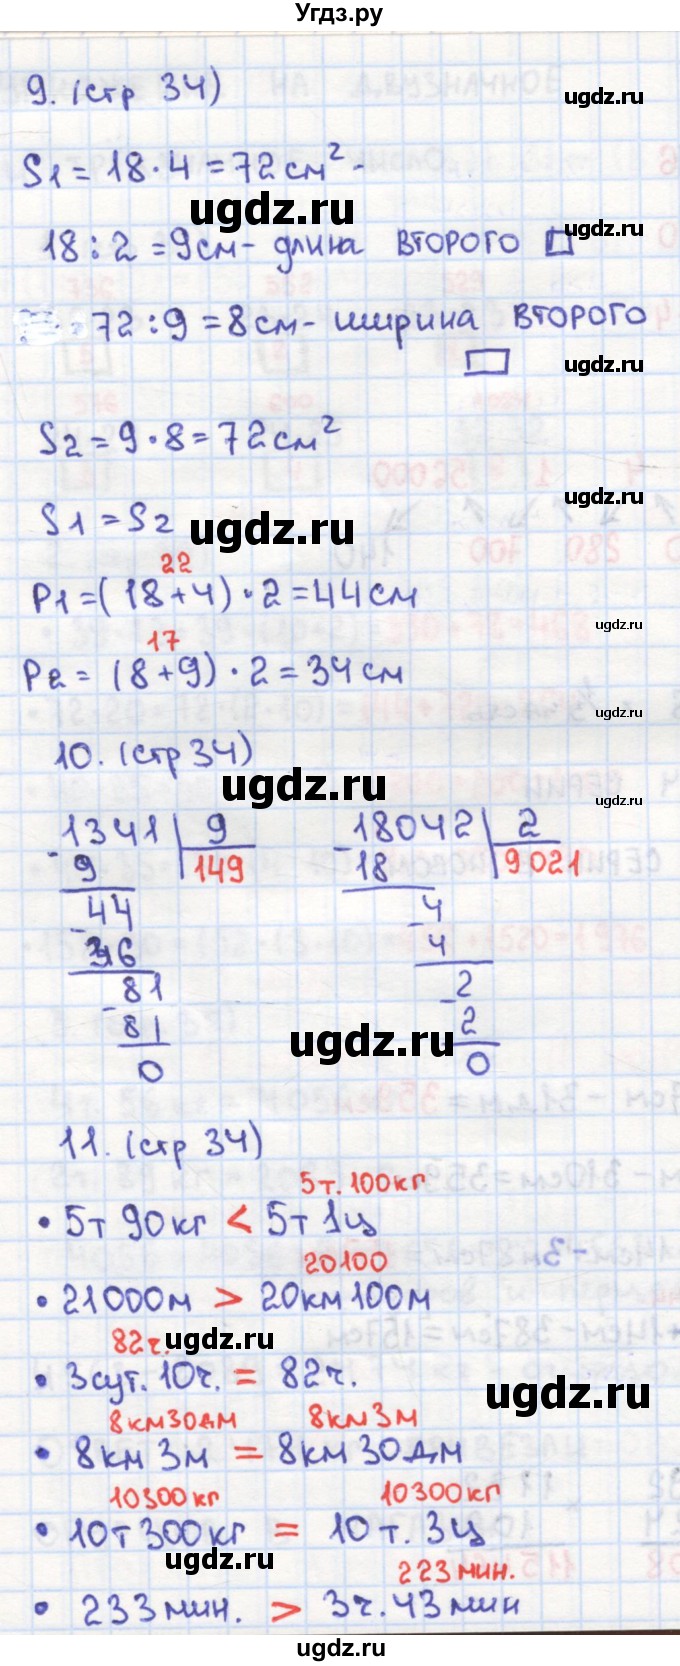 Угдз.ру
9. (стр 34)
ugdz.ru
S1 = 18 · 4 = 72 см² -
ugdz.ru
ugdz.ru
18 : 2 = 9 см - длина второго □
ugdz.ru
72 : 9 = 8 см - ширина второго
▭
ugdz.ru
S2 = 9 · 8 = 72 см²
ugdz.ru
S1 = S2
ugdz.ru
22
P1 = (18 + 4) · 2 = 44 см
ugdz.ru
17
P2 = (8 + 9) · 2 = 34 см
ugdz.ru
10. (стр 34)
ugdz.ru
1341 | 9
- 9 149
44
- 36
81
- 81
0
18042 | 2
- 18 9021
4
- 4
2
- 2
0
ugdz.ru
11. (стр 34)
5т. 100кг
• 5т 90кг < 5т 1ц
20100
• 21000м > 20км 100м
82ч.
ugdz.ru
• 3сут. 10ч. = 82ч.
ugdz.ru
8км30дм 8км3м
• 8км 3м = 8км 30дм
10300кг 10300кг
• 10т 300кг = 10т. 3ц
ugdz.ru
223мин.
• 233мин. > 3ч. 43мин
ugdz.ru